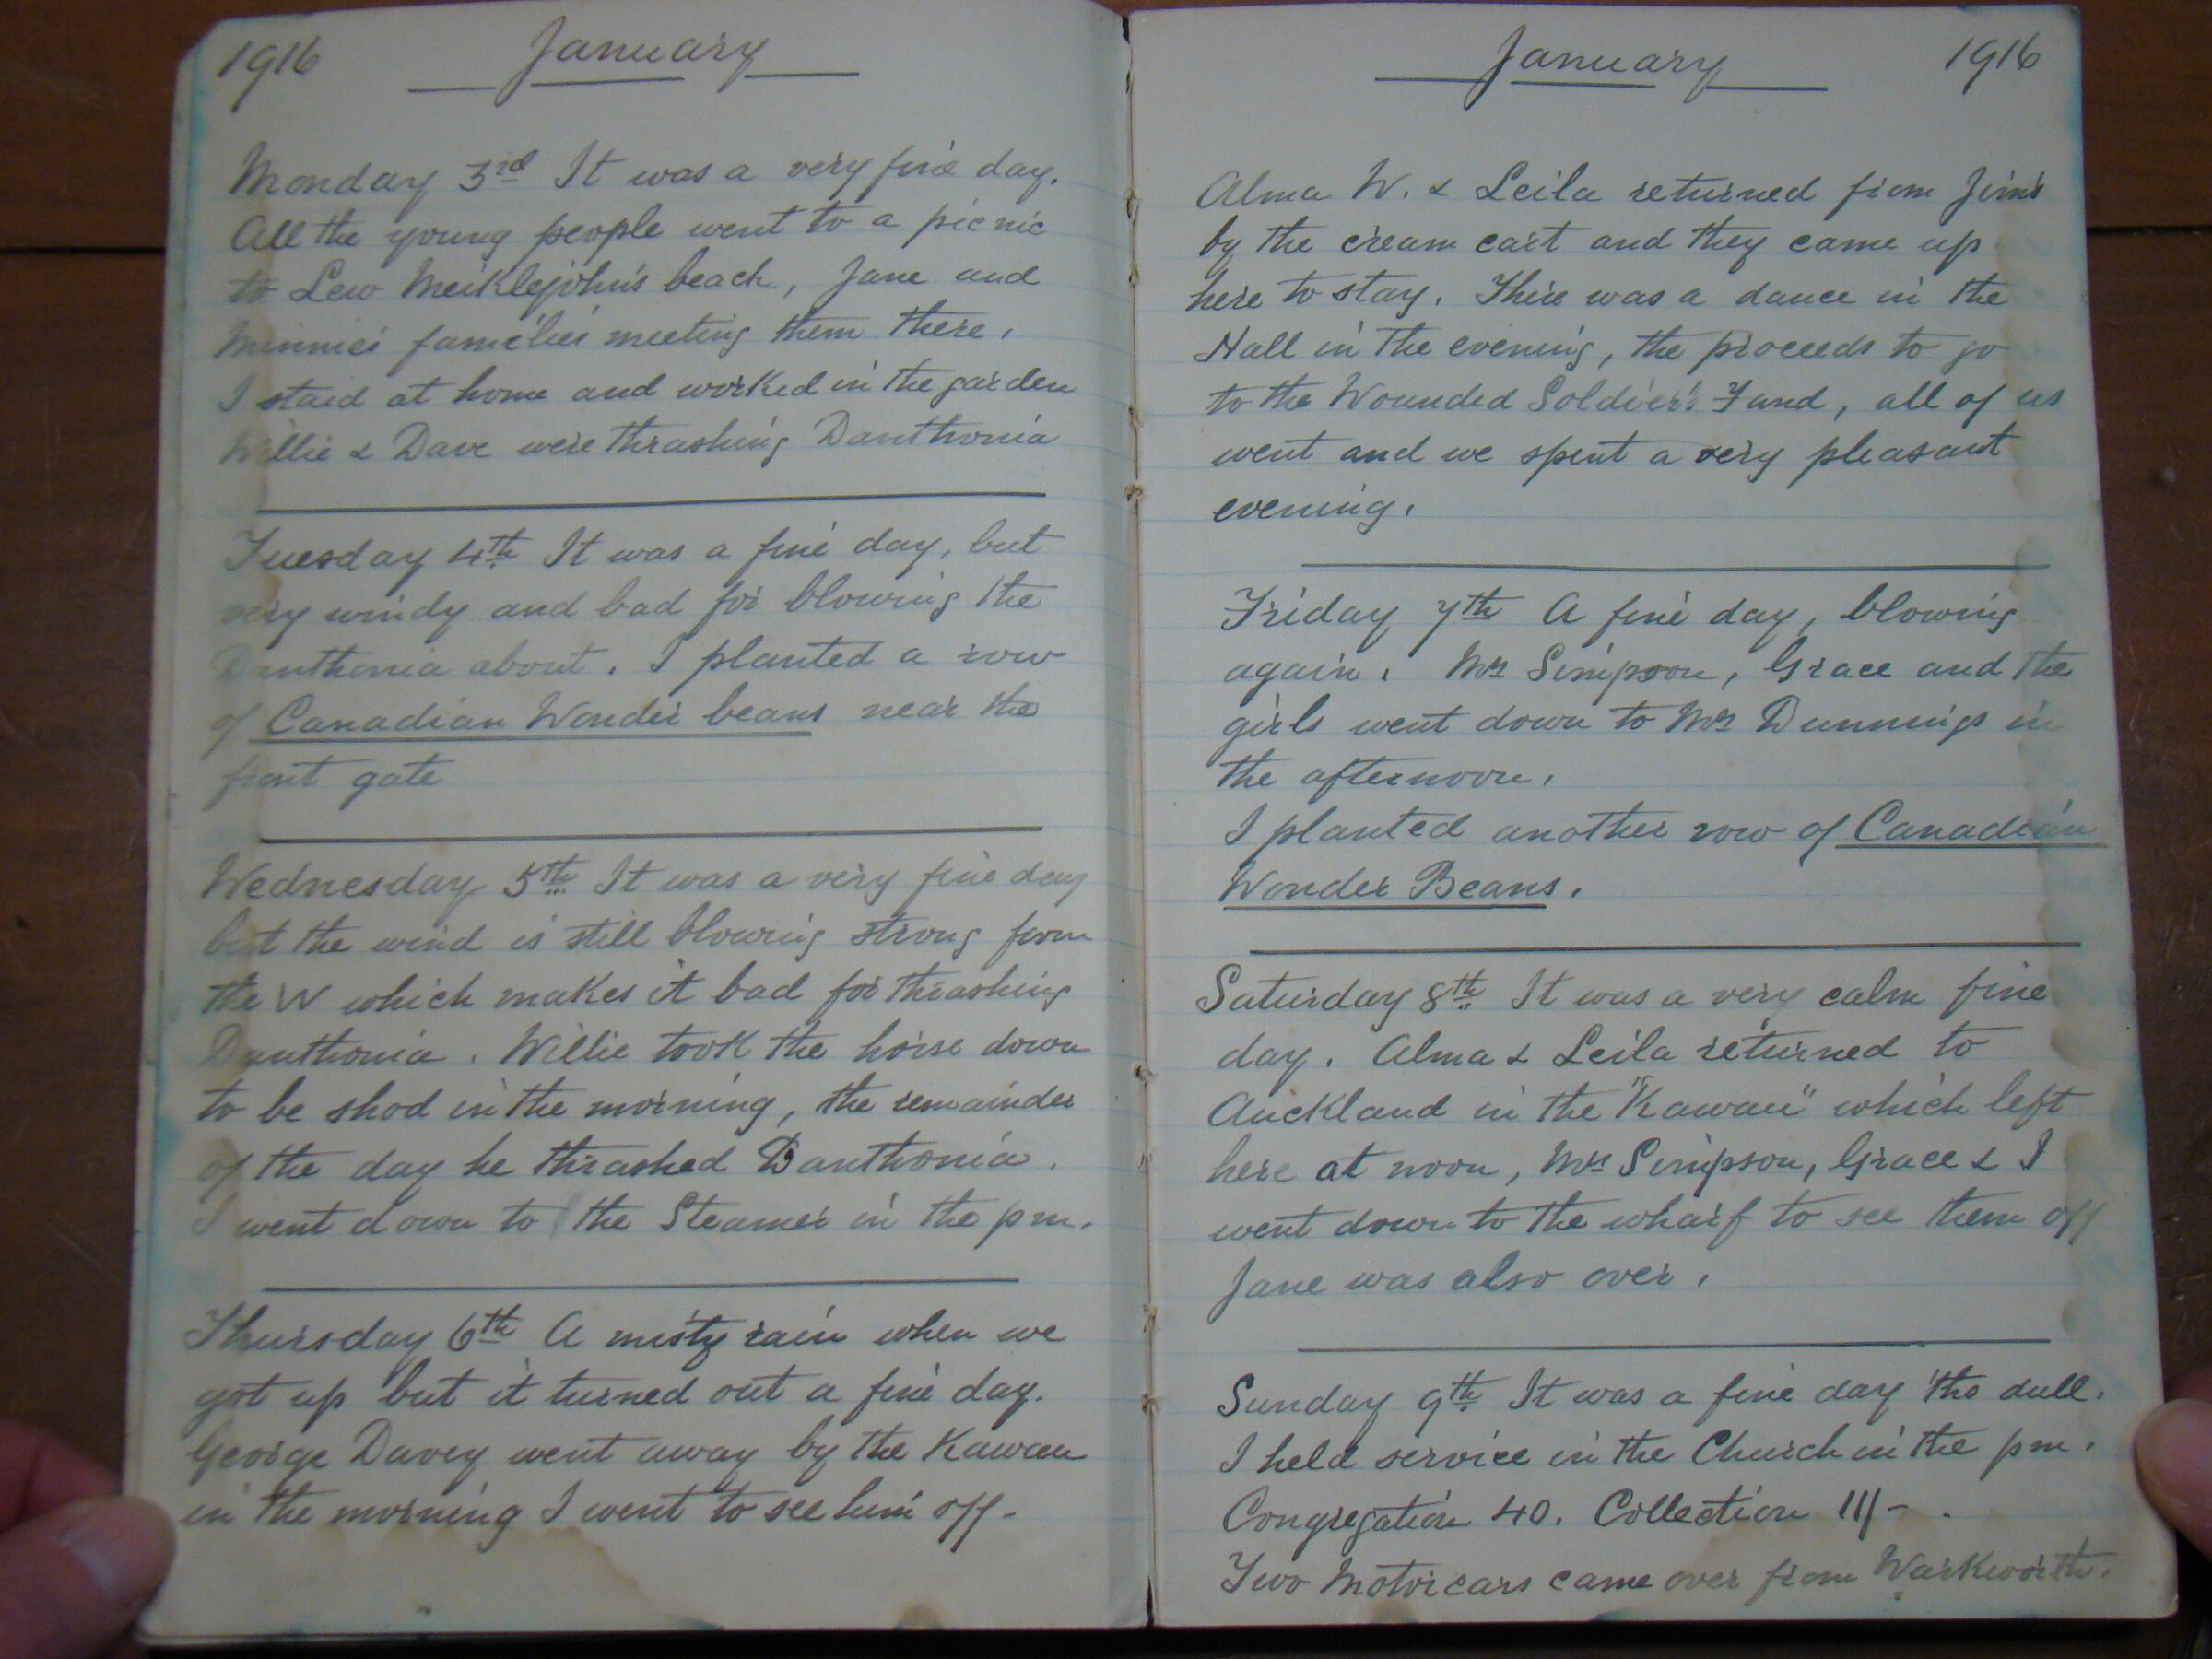 1916 January
Monday 3rd It was a very fine day.
All the young people went to a picnic
to Lew Meiklejohn's beach, Jane and
Minnie's families meeting them there.
I staid at home and worked in the garden
Willie & Dave were thrashing Danthonia
Tuesday 4th It was a fine day, but
very windy and bad for blowing the
Danthonia about. I planted a row
of Canadian Wonder beans near the
front gate
Wednesday 5th It was a very fine day
but the wind is still blowing strong from
the W which makes it bad for thrashing
Danthonia. Willie took the horse down
to be shod in the morning, the remainder
of the day he thrashed Danthonia.
I went down to the Steamer in the pm.
Thursday 6th A misty rain when we
got up but it turned out a fine day.
George Davey went away by the Kawau
in the morning I went to see him off-
January 1916
Alma W. & Leila returned from Jim's
by the cream cart and they came up
here to stay. There was a dance in the
Hall in the evening, the proceeds to go
to the Wounded Soldier's Fund, all of us
went and we spent a very pleasant
evening.
Friday 7th A fine day, blowing
again. Mrs Simpson, Grace and the
girls went down to Mrs Dunnings in
the afternoon.
I planted another row of Canadian
Wonder Beans.
Saturday 8th It was a very calm fine
day. Alma & Leila returned to
Auckland in the "Kawau" which left
here at noon, Mrs Simpson, Grace & I
went down to the wharf to see them off
Jane was also over.
Sunday 9th It was a fine day tho dull.
I held service in the Church in the pm.
Congregation 40. Collection 11/- .
Two Motorcars came over from Warkworth.